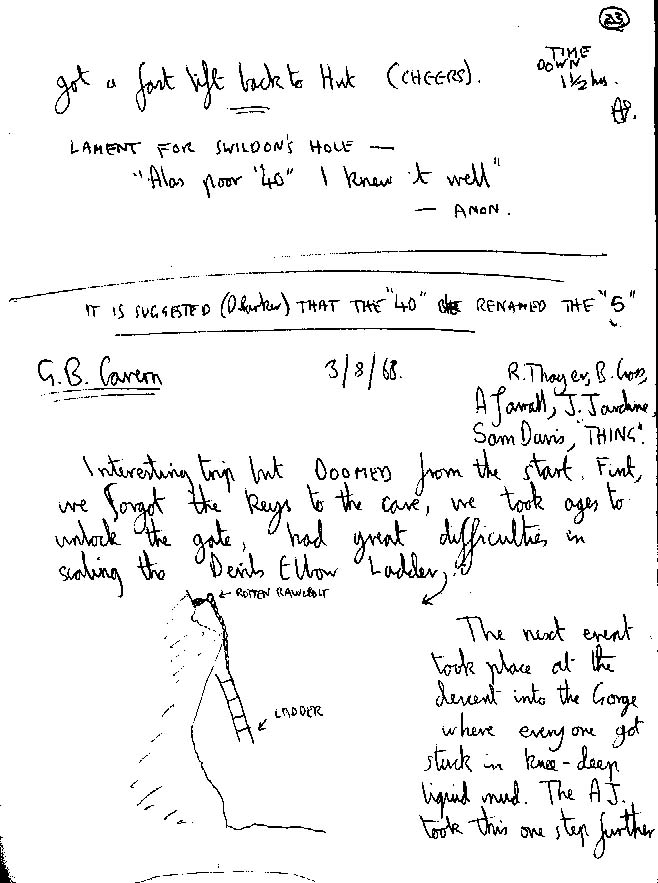 23
got a fast lift back to Hut (CHEERS).
TIME
DOWN
1½ hrs.
LAMENT FOR SWILDON'S HOLE —
"Alas poor "40" I knew it well"
— ANON.
IT IS SUGGESTED (D.        ) THAT THE "40" BE RENAMED THE "5"
G.B. Cavern 3/8/68.
R. Thayer, B. Cross,
A Jarratt, J. Jardine,
Sam Davis, "THING".
Interesting trip but DOOMED from the start. First,
we forgot the keys to the cave, we took ages to
unlock the gate, had great difficulties in
scaling the Devils Elbow Ladder,
← ROTTEN RAWLBOLT
← LADDER
The next event
took place at the
descent into the Gorge
where everyone got
stuck in knee-deep
liquid mud. The A.J.
took this one step further